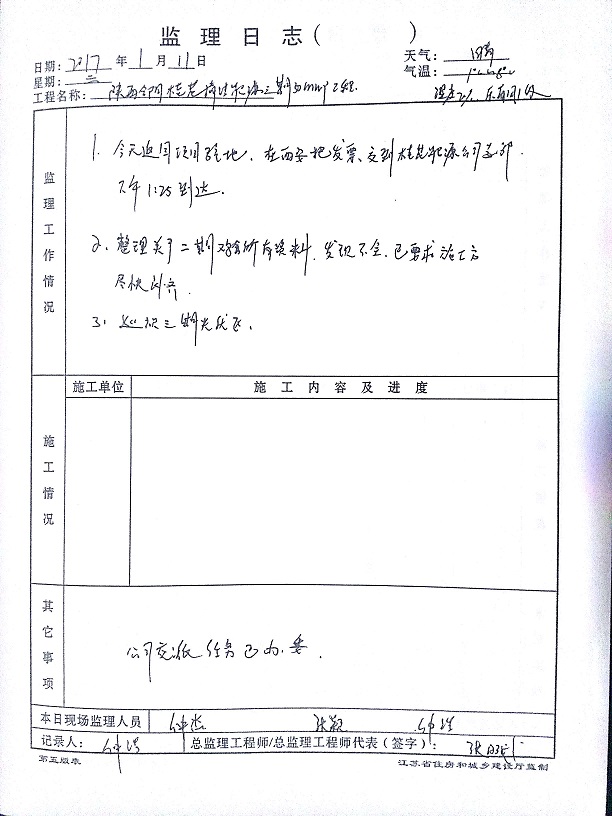 监理日志( )
日期：2017 年 1 月 11 日 天气：晴
星期：三 气温：
工程名称：陕西合阳 东南风1级
监理工作情况
1. 今天返回项目驻地，在西安把发票交到 能源公司总部，
下午1:25到达。
2. 整理关于二期 所有资料，发现不全，已要求施工方
尽快补齐。
3. 巡视三期光伏区。
施工单位 施工内容及进度
施工情况
其它事项
公司交派任务已办妥。
本日现场监理人员
记录人： 总监理工程师/总监理工程师代表(签字)：
第五版表 江苏省住房和城乡建设厅监制